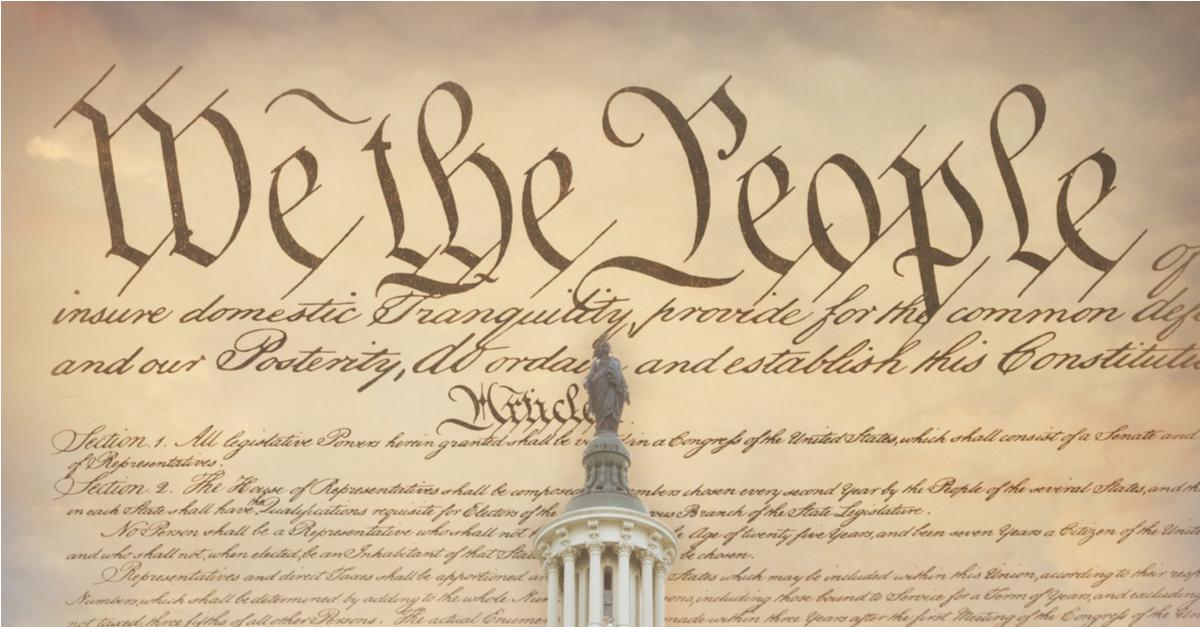 We the People
insure domestic Tranquility, provide for the common
and our Posterity, do ordain and establish this
Article
Section. 1. All legislative Powers herein granted shall be in a Congress of the United States, which shall consist of a Senate and
of Representatives.
Section. 2. The House of Representatives shall be chosen every second Year by the People of the several States, and
in each State shall have the Qualifications requisite for Electors of the Branch of the State Legislature.
No Person shall be a Representative who shall not Age of twenty five Years, and been seven Years a Citizen of the
and who shall not, when elected, be an Inhabitant of that be chosen.
Representatives and direct Taxes shall be apportioned States which may be included within this Union, according to their
Numbers, which shall be determined by adding to the whole including those bound to Service for a Term of Years, and excluding
not taxed, three fifths of all other Persons. The actual made within three Years after the first Meeting of the Congress of the